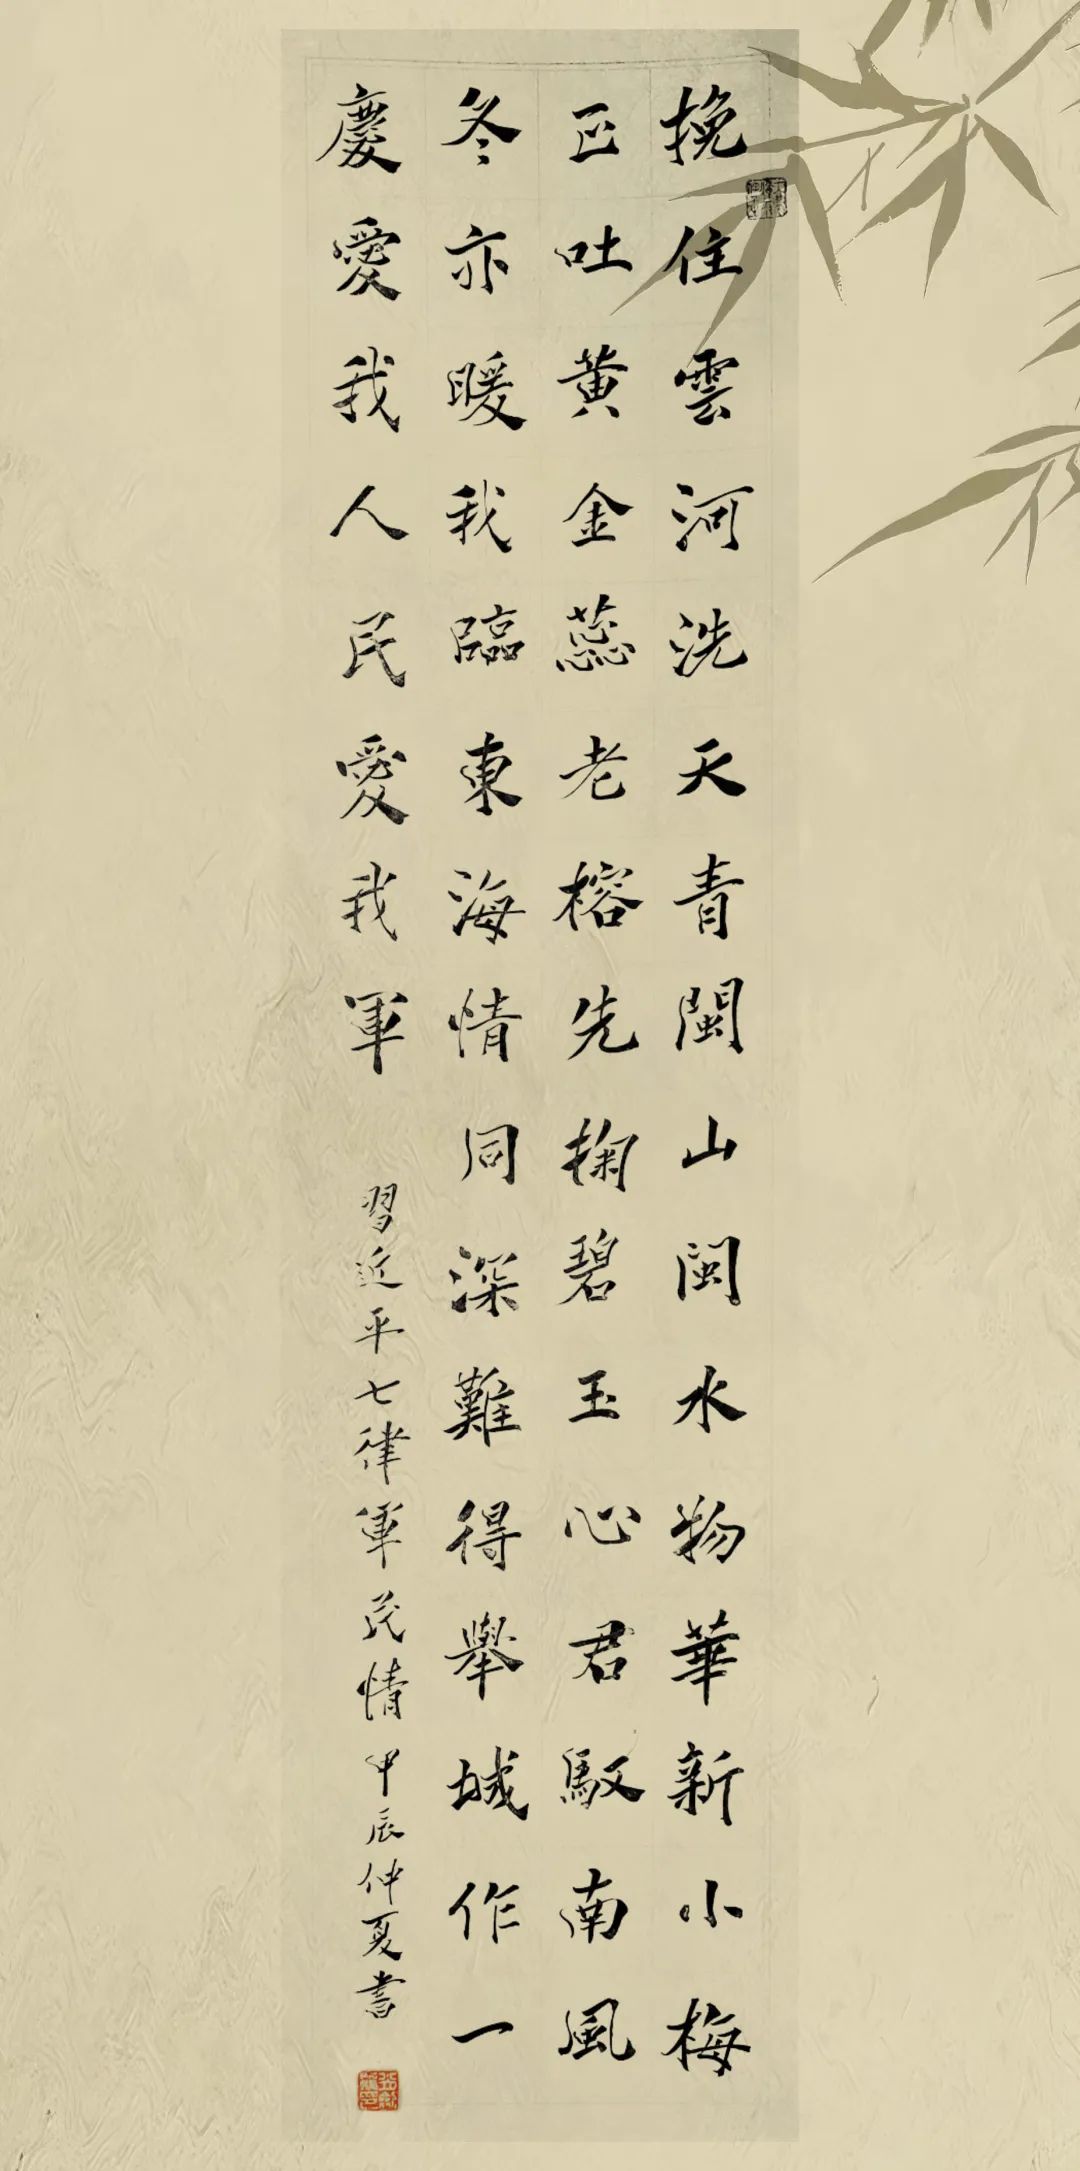 挽住雲河洗天青閩山閩水物華新小梅
正吐黃金蕊老榕先掬碧玉心君馭南風
冬亦暖我臨東海情同深難得舉城作一
慶愛我人民愛我軍
習近平七律軍民情甲辰仲夏書